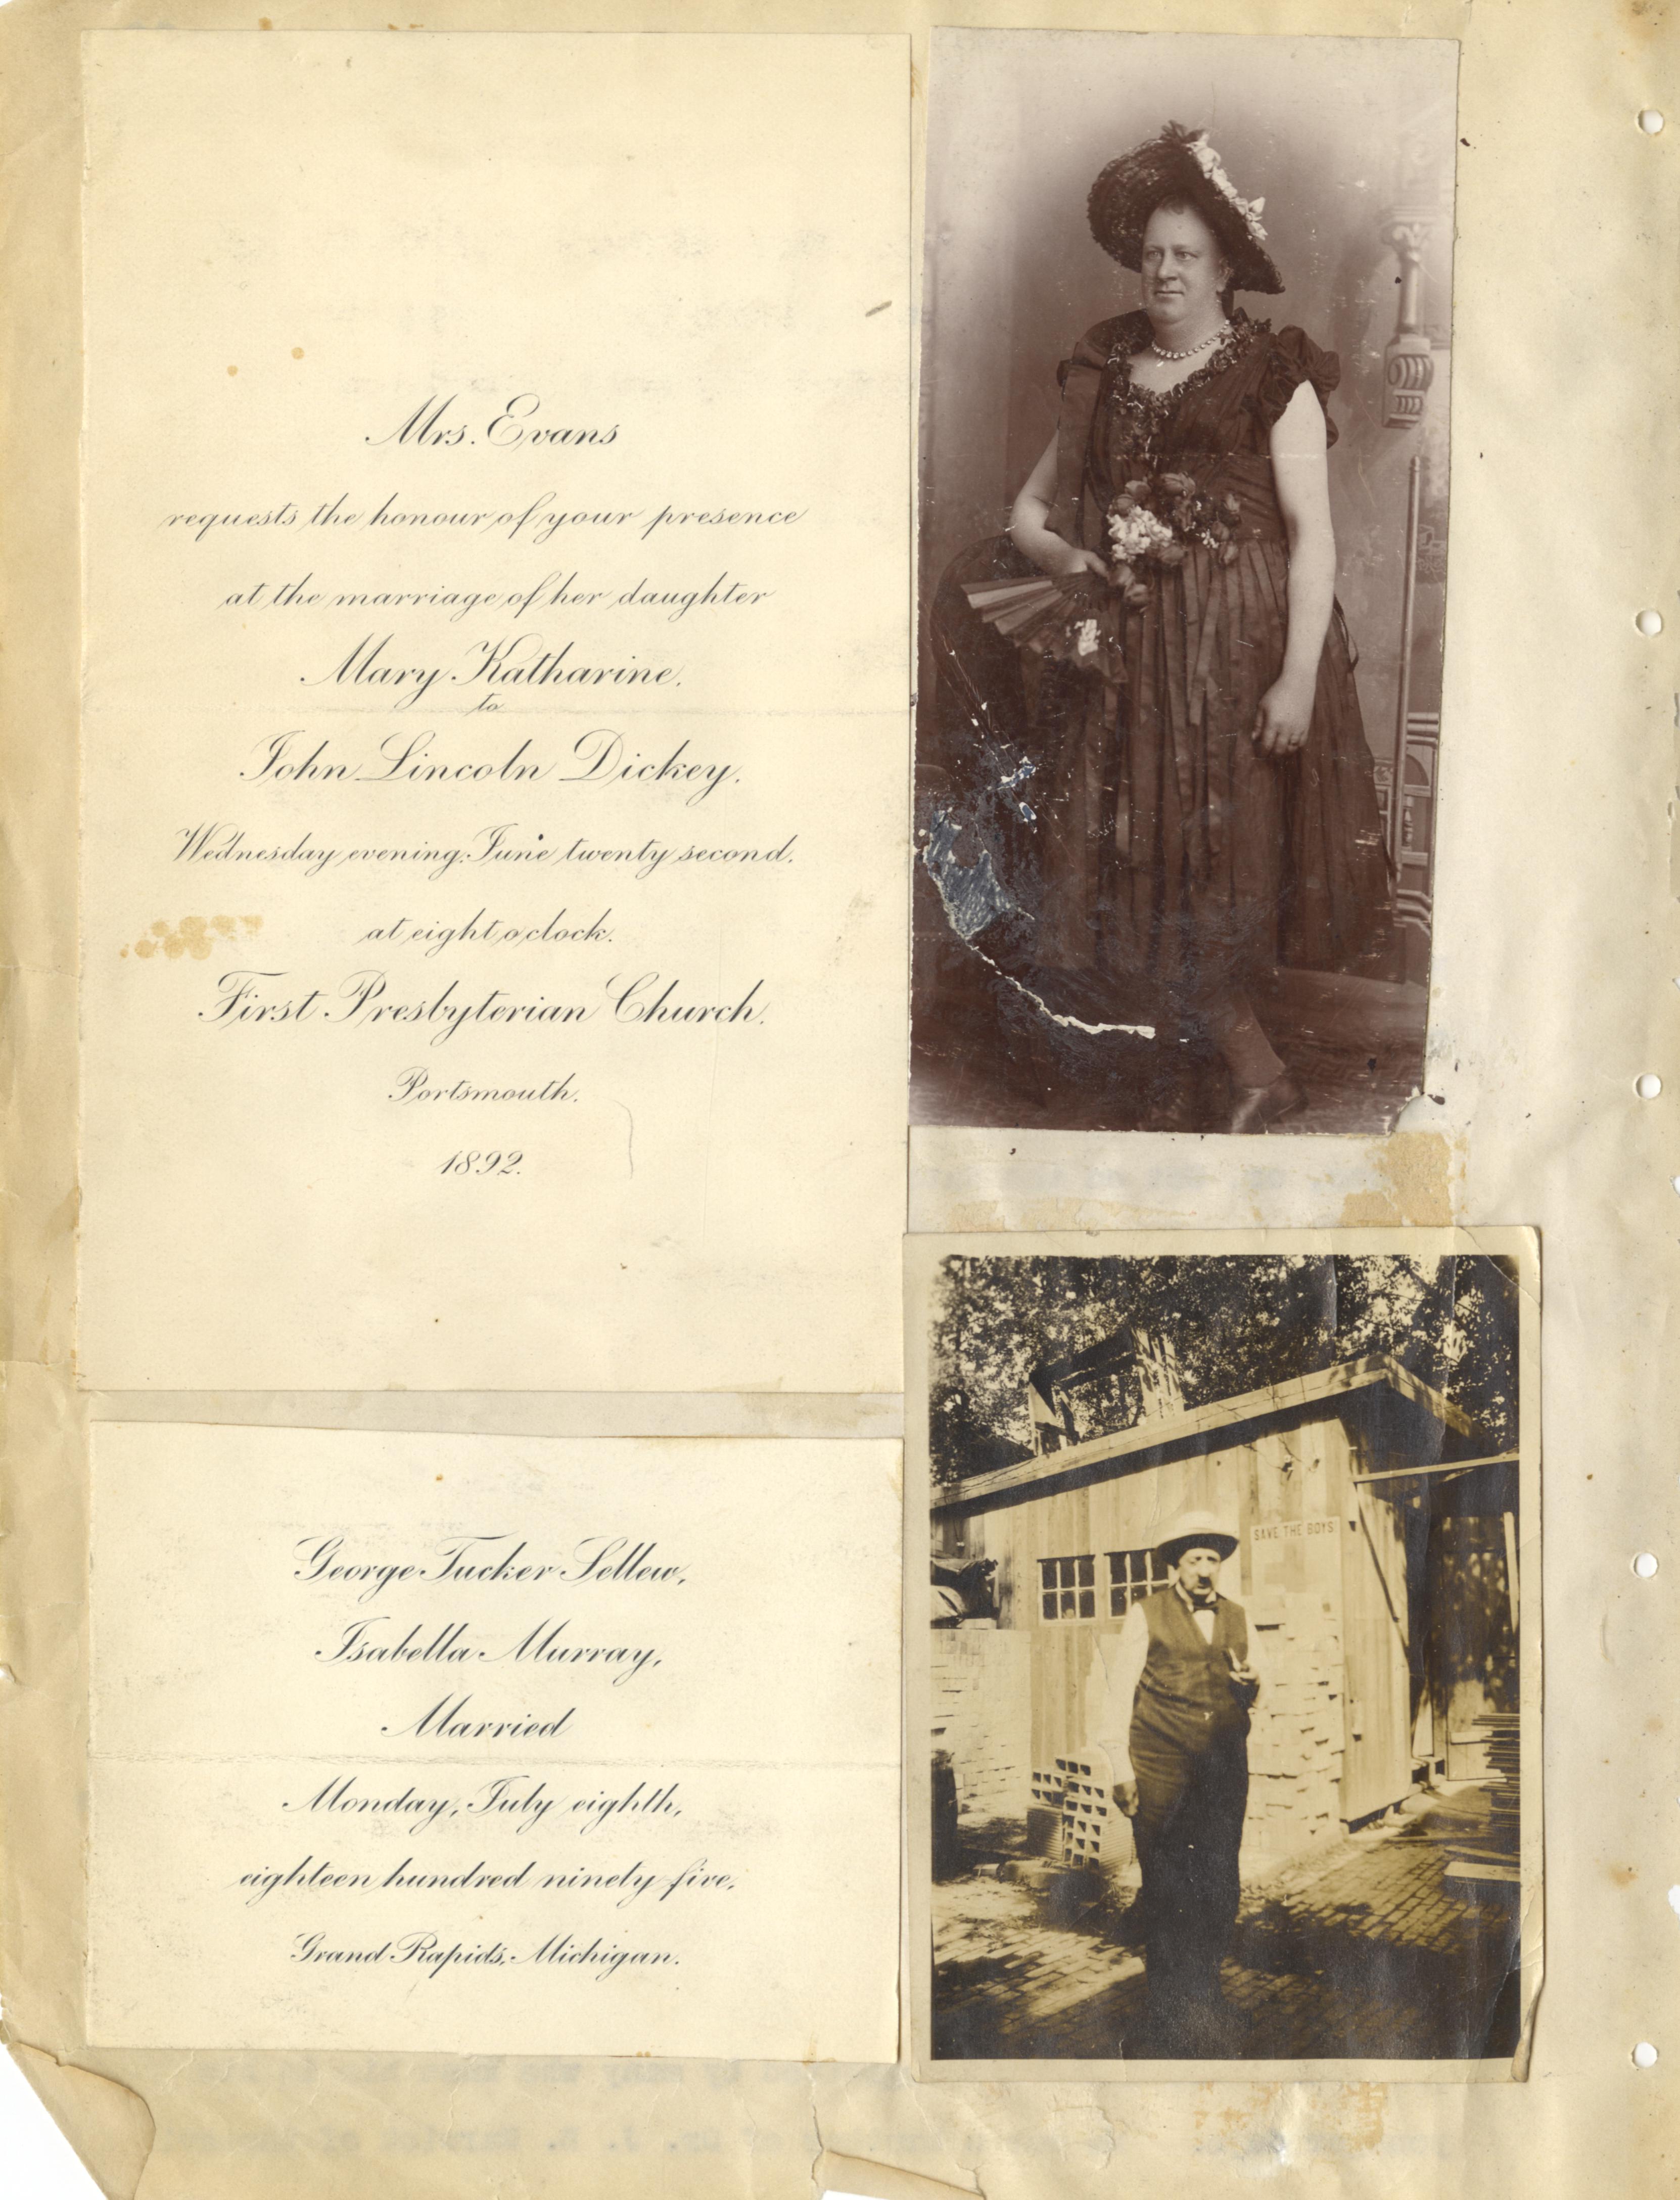 Mrs. Evans
requests the honour of your presence
at the marriage of her daughter
Mary Katharine.
to
John Lincoln Dickey.
Wednesday evening, June twenty second.
at eight o'clock.
First Presbyterian Church.
Portsmouth.
1892.
George Tucker Sellew,
Isabella Murray,
Married
Monday, July eighth,
eighteen hundred ninety five,
Grand Rapids, Michigan.
SAVE THE BOYS